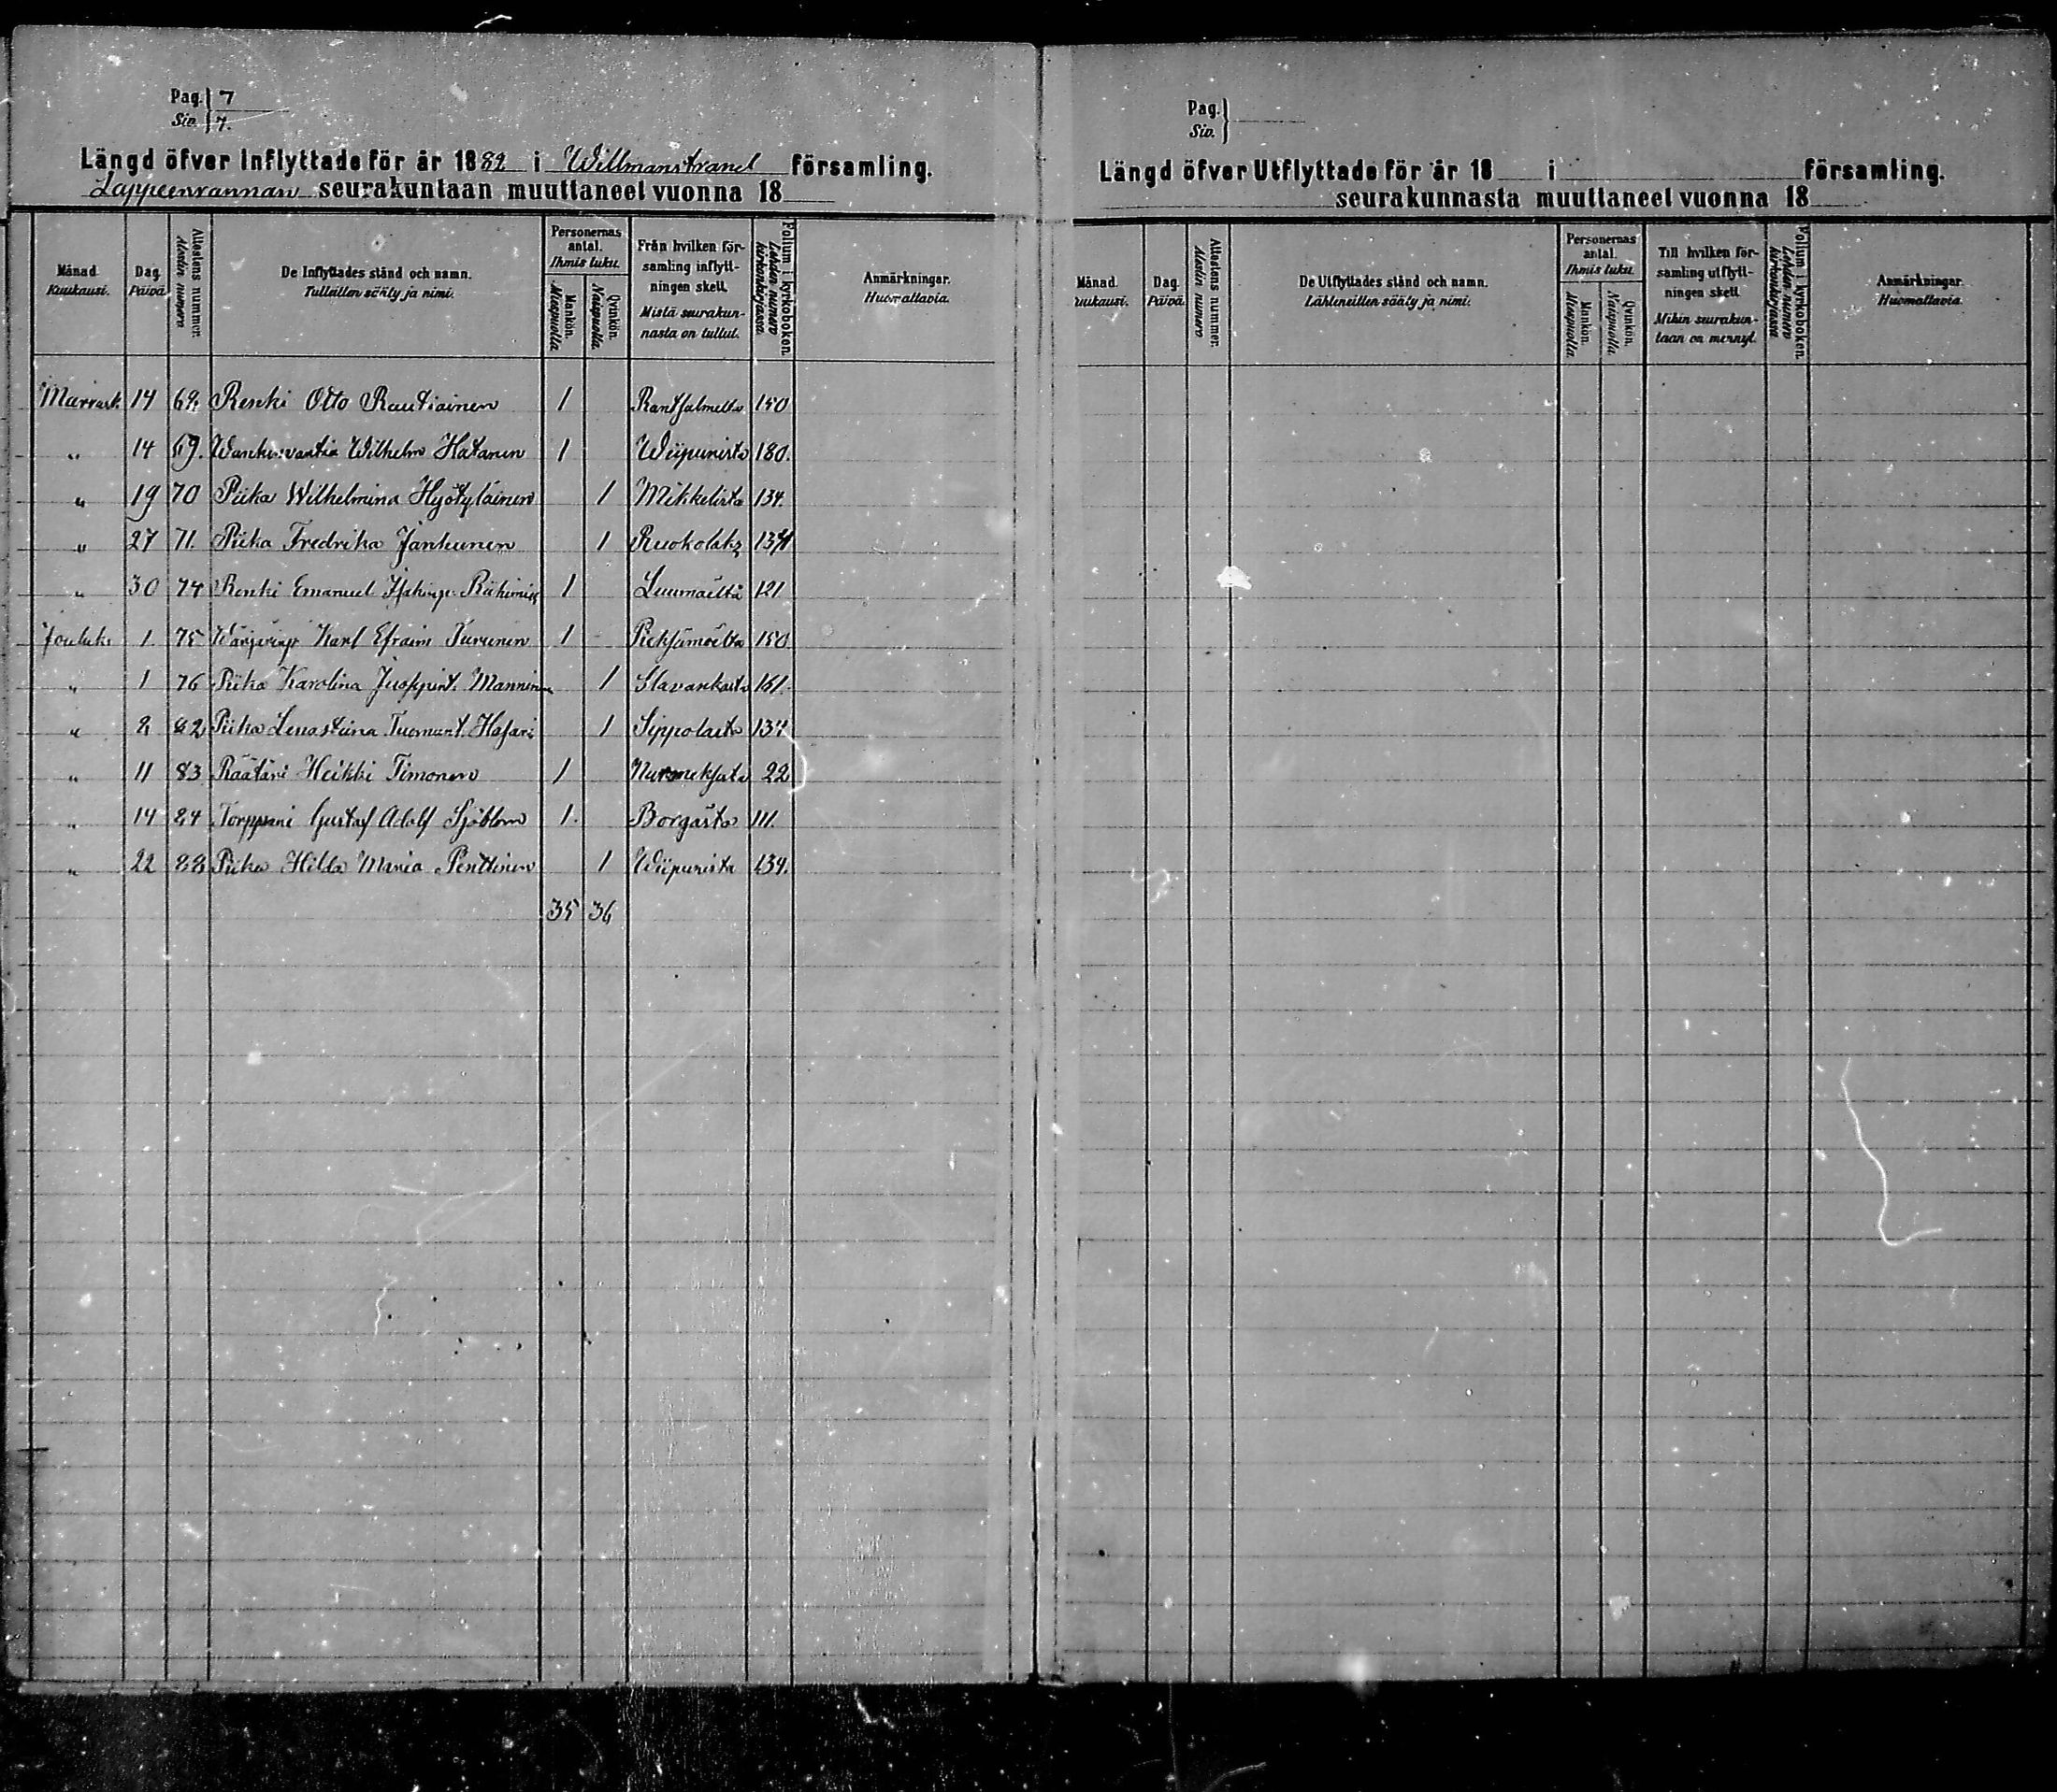 Pag. 7
Siv. 7.
Längd öfver Inflyttade för år 1882 i Willmanstrand församling.
Lappeenrannan seurakuntaan muuttaneet vuonna 18
Månad. Kuukausi.
Dag. Päivä.
Attestens nummer. Atestin numero.
De Inflyttades stånd och namn. Tulleitten sääty ja nimi.
Personernas antal. Ihmis luku.
Mankön. Miespuolia
Qvinkön. Naispuolia.
Från hvilken församling inflyttningen skett. Mistä seurakunnasta on tullut.
Folium i kyrkoboken. Lehden numero kirkonkirjassa
Anmärkningar. Huomattavia.
Marrask. 14 68. Renki Otto Rautiainen 1 Rantsalmelta 150
" 14 69. Wanki-vartia Wilhelm Hatanen 1 Wiipurista 180.
" 19 70 Piika Wilhelmina Hyötyläinen 1 Mikkelistä 134.
" 27 71. Piika Fredrika Janhunen 1 Ruokolaks 134
" 30 74 Renki Emanuel 1 Luumäeltä 121
Jouluk. 1 75 Karl Efraim Turunen 1 Pieksämäeltä 150
" 1 76 Piika Karolina Manninen 1 Slavankasta 161.
" 8 82 Piika Leenastiina Tuomunt. 1 Sippolasta 134
" 11 83 Räätäri Heikki Timonen 1 Nurmeksesta 22
" 14 84 Torppari Gustaf Adolf Sjöblom 1. Borgåsta 111.
" 22 88 Piika Hilda Maria Penttinen 1 Wiipurista 134.
35 36
Pag.
Siv.
Längd öfver Utflyttade för år 18 i församling.
seurakunnasta muuttaneet vuonna 18
Månad. uukausi.
Dag. Päivä.
Attestens nummer. Atestin numero
De Utflyttades stånd och namn. Lähteneitten sääty ja nimi.
Personernas antal. Ihmis luku.
Mankön. Miespuolia
Qvinkön. Naispuolia
Till hvilken församling utflyttningen skett. Mihin seurakuntaan on mennyt.
Folium i kyrkoboken. Lehden numero kirkonkirjassa
Anmärkningar. Huomattavia.